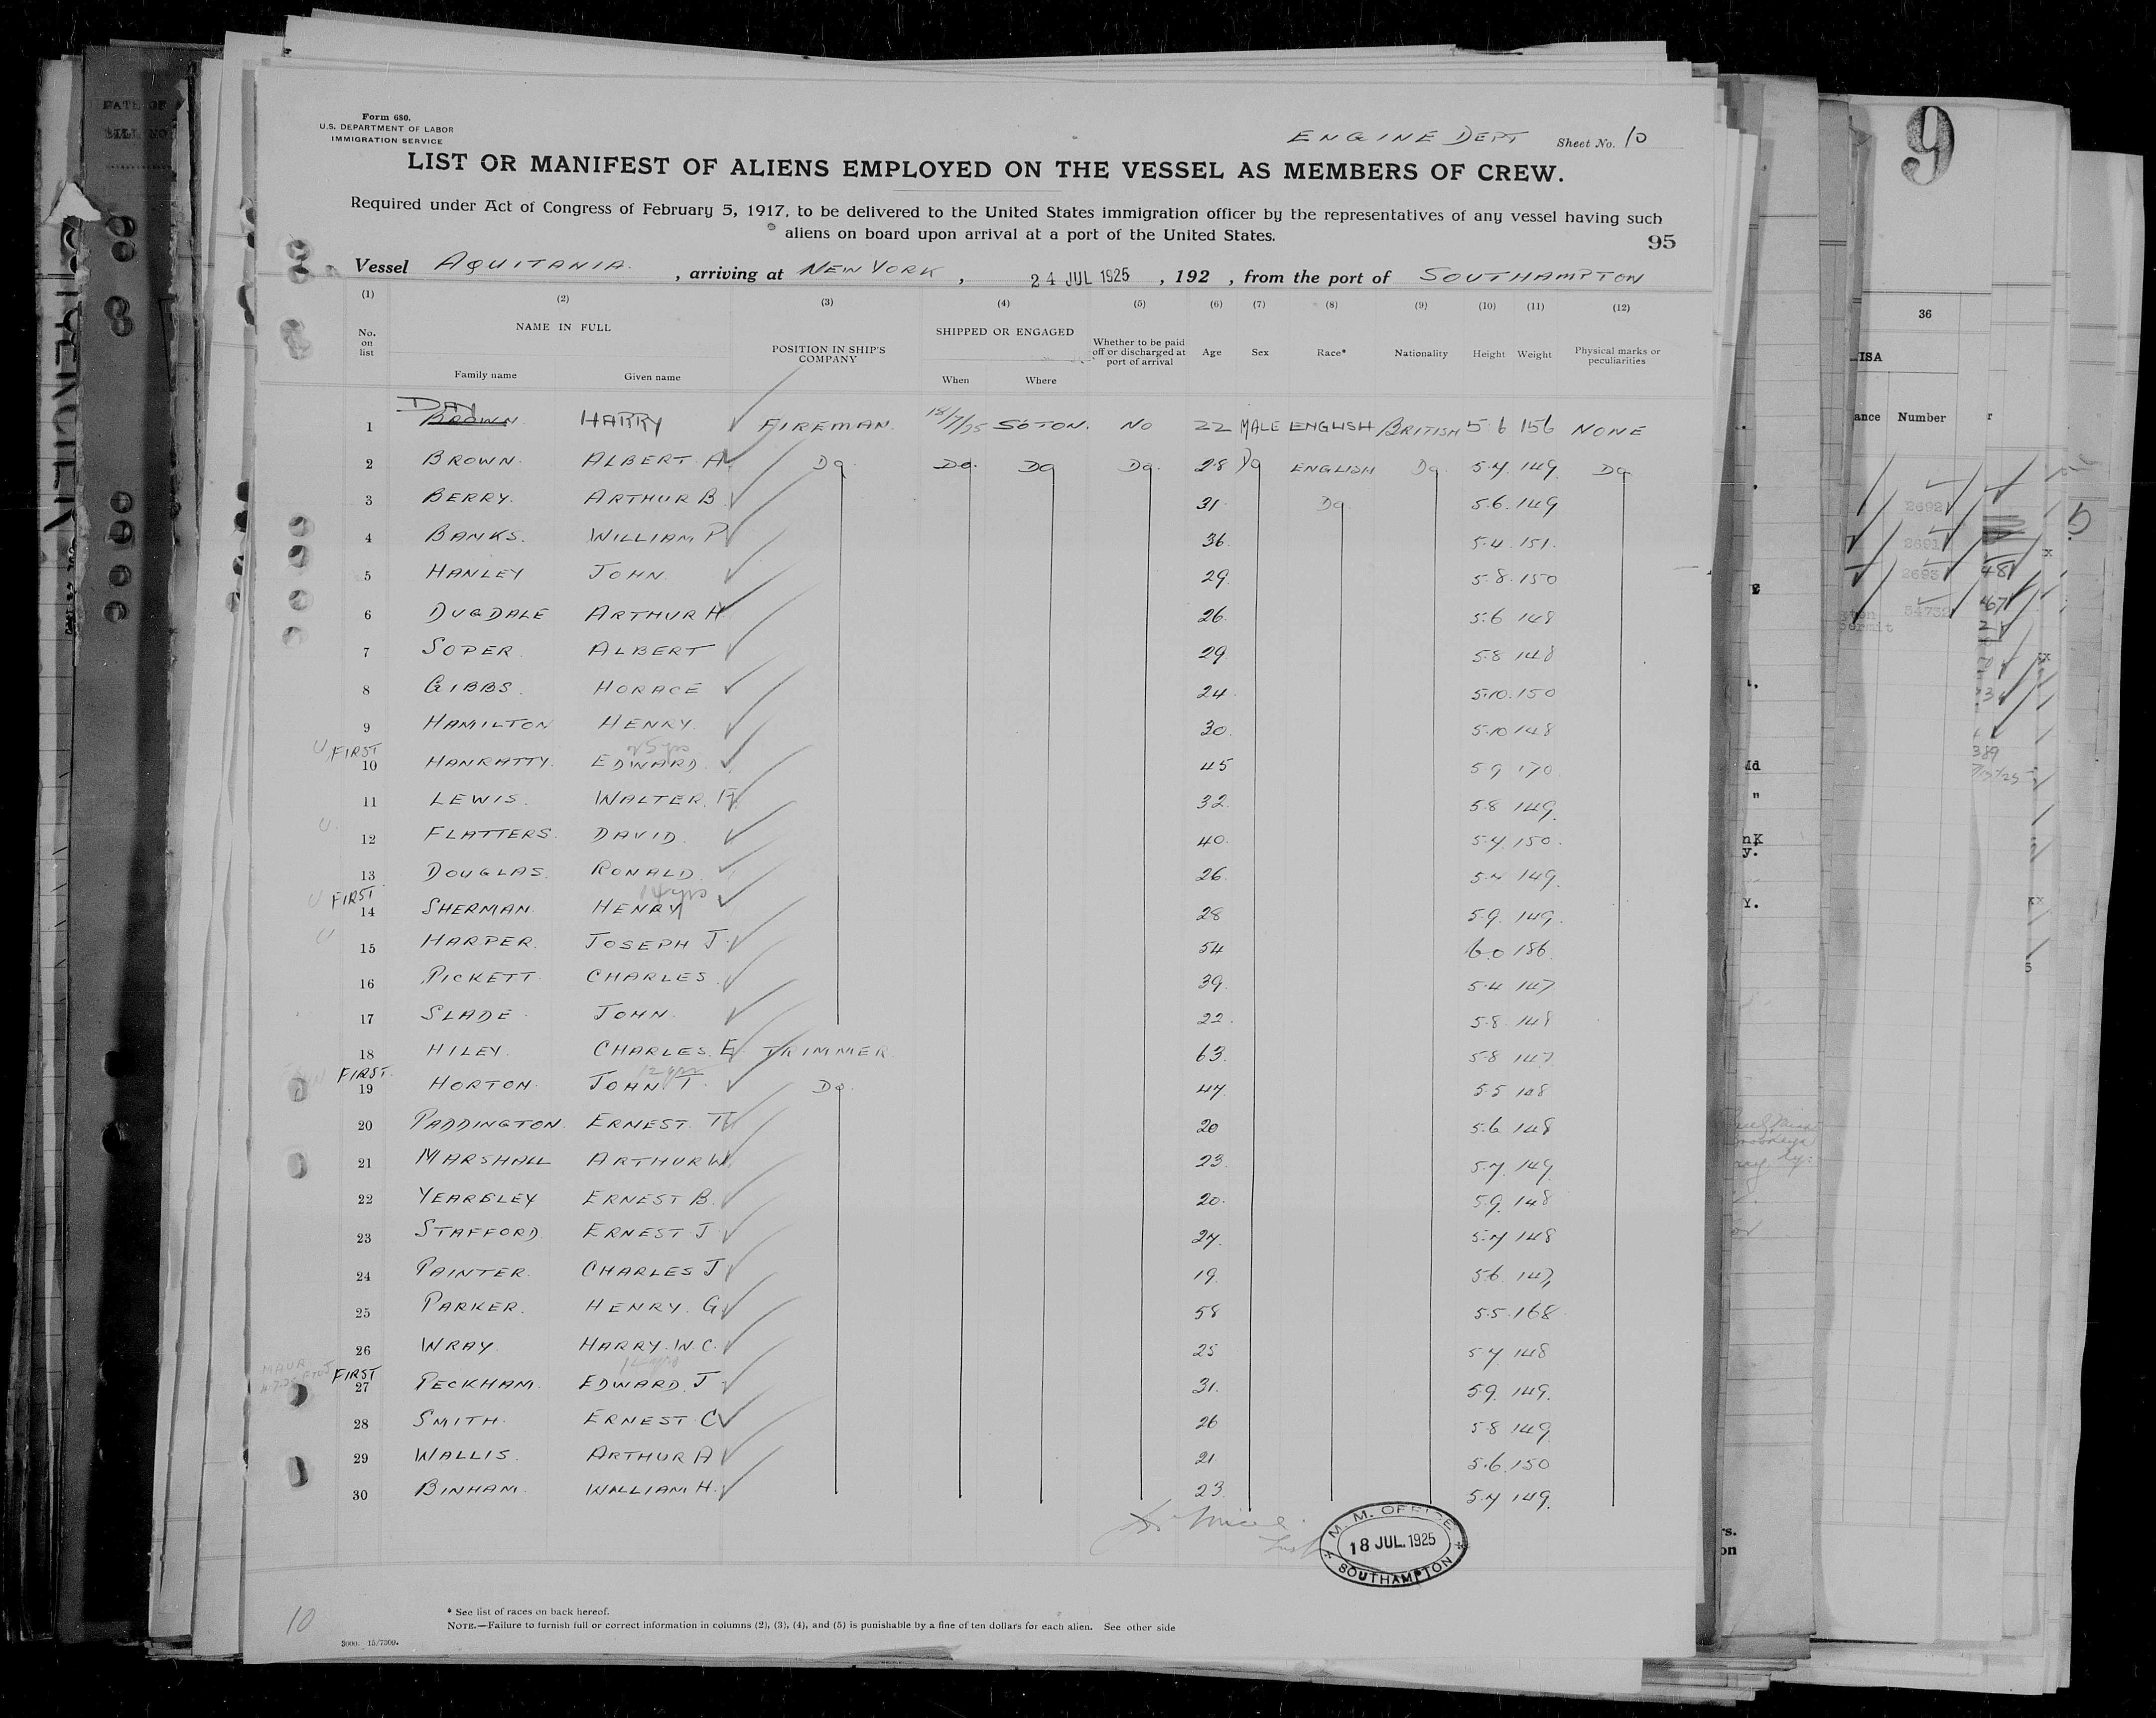 Form 680.
U.S. DEPARTMENT OF LABOR
IMMIGRATION SERVICE
ENGINE DEPT Sheet No. 10
LIST OR MANIFEST OF ALIENS EMPLOYED ON THE VESSEL AS MEMBERS OF CREW.
Required under Act of Congress of February 5, 1917, to be delivered to the United States immigration officer by the representatives of any vessel having such
aliens on board upon arrival at a port of the United States.
95
Vessel AQUITANIA, arriving at NEW YORK, 24 JUL 1925, 192 , from the port of SOUTHAMPTON
(1) (2) (3) (4) (5) (6) (7) (8) (9) (10) (11) (12)
No. on list NAME IN FULL POSITION IN SHIP'S COMPANY SHIPPED OR ENGAGED Whether to be paid off or discharged at port of arrival Age Sex Race* Nationality Height Weight Physical marks or peculiarities
Family name Given name When Where
DAY
1 BROWN HARRY FIREMAN 18/7/25 SOTON. NO 22 MALE ENGLISH BRITISH 5.6 156 NONE
2 BROWN ALBERT A Do Do. Do Do. 28 Do ENGLISH Do 5.7 149 Do
3 BERRY. ARTHUR B 31 Do 5.6 149
4 BANKS. WILLIAM P 36. 5.4 151.
5 HANLEY JOHN. 29. 5.8 150
6 DUGDALE ARTHUR H. 26. 5.6 148
7 SOPER ALBERT 29 5.8 148
8 GIBBS. HORACE 24 5.10 150
9 HAMILTON HENRY. 30. 5.10 148
FIRST 25 yrs
10 HANRATTY. EDWARD. 45 5.9 170
11 LEWIS. WALTER. 32. 5.8 149.
12 FLATTERS. DAVID. 40. 5.7 150.
13 DOUGLAS. RONALD 26. 149.
FIRST 14 yrs
14 SHERMAN. HENRY 28 5.9. 149.
15 HARPER. JOSEPH J. 54 6.0 186
16 PICKETT. CHARLES 39. 5.4 147
17 SLADE JOHN. 22. 5.8. 148
18 HILEY CHARLES. E. TRIMMER. 63. 5.8 147
FIRST. 12 yrs
19 HORTON. JOHN T. Do. 47. 5.5
20 PADDINGTON. ERNEST T. 20 5.6 148
21 MARSHALL ARTHUR W. 23. 5.7. 149
22 YEARSLEY ERNEST B. 20. 5.9. 148
23 STAFFORD ERNEST J 27. 5.7 148
24 PAINTER. CHARLES J 19. 5.6 147
25 PARKER. HENRY. G. 58 5.5. 168
26 WRAY HARRY. W. C. 25 5.7 148
MAUR FIRST 14 yrs
27 PECKHAM. EDWARD. J 31. 5.9. 149.
28 SMITH. ERNEST C 26 5.8 149
29 WALLIS. ARTHUR A 21 5.6. 150
30 BINHAM. WILLIAM H. 23 5.7 149.
M. M. OFFICE
18 JUL. 1925
SOUTHAMPTON
* See list of races on back hereof.
NOTE.—Failure to furnish full or correct information in columns (2), (3), (4), and (5) is punishable by a fine of ten dollars for each alien. See other side
10
5000. 15/7300.
9
36
ISA
ance Number
2692
2691
2693
48
467
389